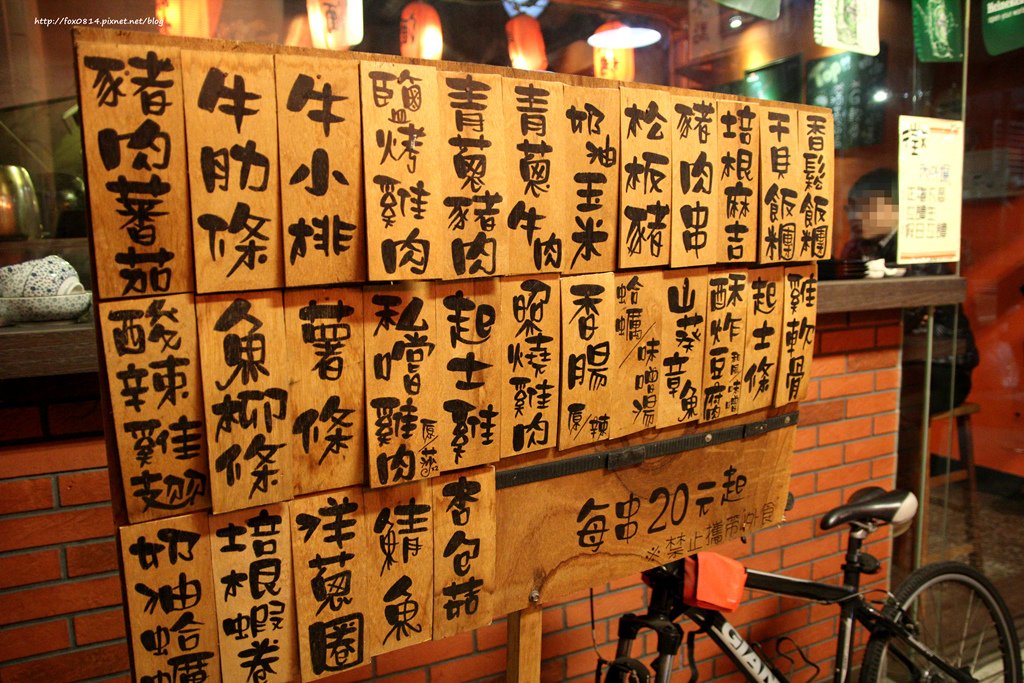 http://fox0814.pixnet.net/blog
豬肉蕃茄
牛肋條
牛小排
鹽烤雞肉
青蔥豬肉
青蔥牛肉
奶油玉米
松板豬
豬肉串
培根麻吉
干貝飯糰
香鬆飯糰
酸辣雞翅
魚柳條
薯條
私嚐雞肉 原/茄
起士雞
照燒雞肉
香腸 原/辣
蛤蠣/味噌湯
山葵章魚
酥炸豆腐
起士條
雞軟骨
奶油蛤蠣
培根蝦卷
洋蔥圈
鯖魚
杏包菇
每串20元起
※禁止攜帶外食
GIANT